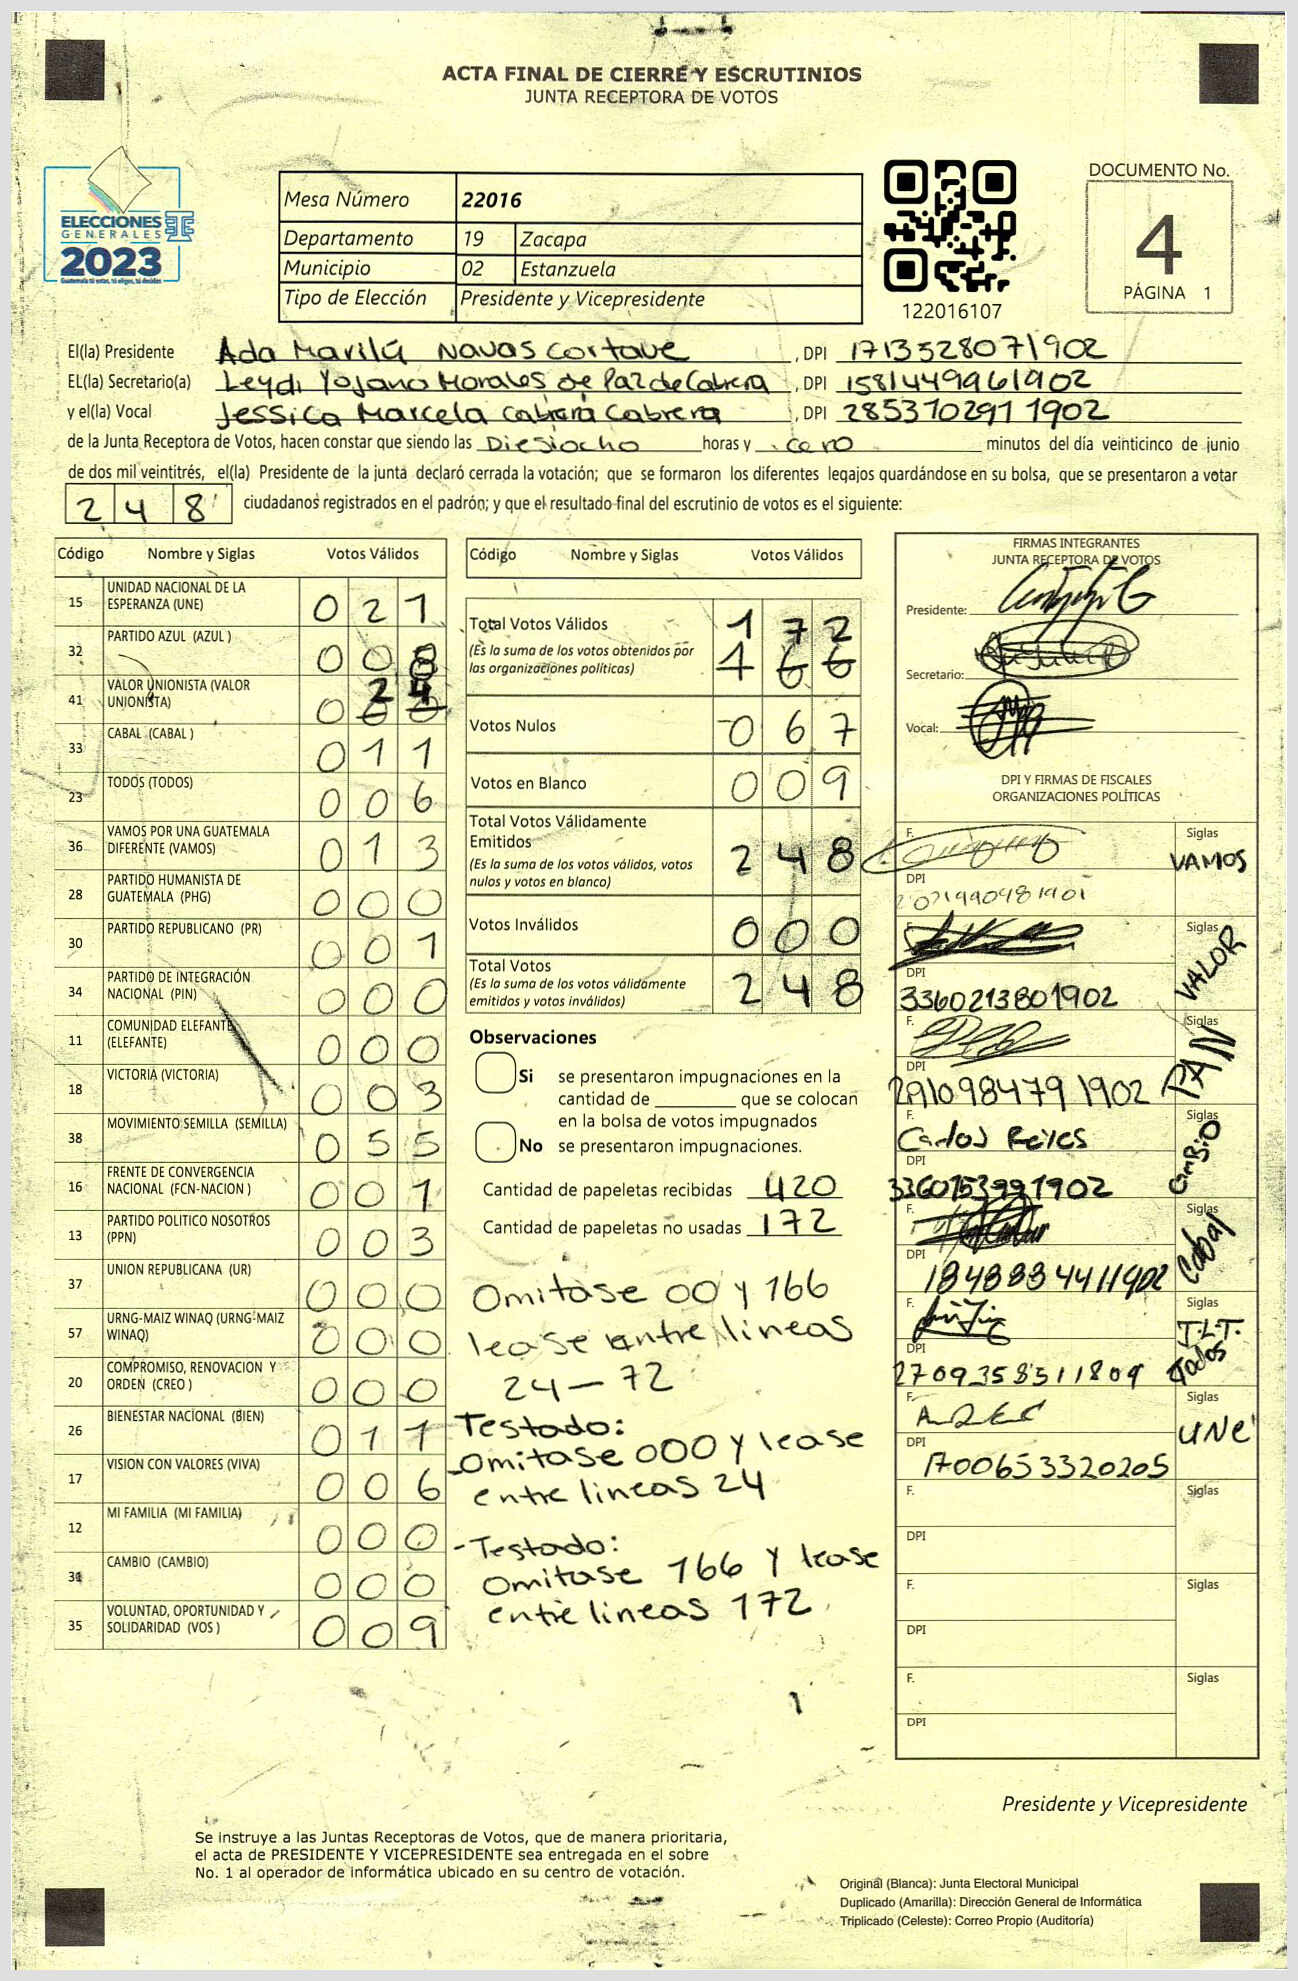 ACTA FINAL DE CIERRE Y ESCRUTINIOS
JUNTA RECEPTORA DE VOTOS
ELECCIONES
GENERALES
2023
Guatemala tú votas, tú eliges, tú decides
Mesa Número 22016
Departamento 19 Zacapa
Municipio 02 Estanzuela
Tipo de Elección Presidente y Vicepresidente
122016107
DOCUMENTO No.
4
PÁGINA 1
El(la) Presidente Ada Marilú Navas Cortave, DPI 1713528071902
EL(la) Secretario(a) Leydi Yojana Morales de Paz de Cabrera, DPI 1581449961902
y el(la) Vocal Jessica Marcela Cabrera Cabrera, DPI 2853702911902
de la Junta Receptora de Votos, hacen constar que siendo las Diesiocho horas y cero minutos del día veinticinco de junio
de dos mil veintitrés, el(la) Presidente de la junta declaró cerrada la votación; que se formaron los diferentes legajos quardándose en su bolsa, que se presentaron a votar
248 ciudadanos registrados en el padrón; y que el resultado final del escrutinio de votos es el siguiente:
Código Nombre y Siglas Votos Válidos
15 UNIDAD NACIONAL DE LA ESPERANZA (UNE) 021
32 PARTIDO AZUL (AZUL ) 008
41 VALOR UNIONISTA (VALOR UNIONISTA) 24 000
33 CABAL (CABAL ) 011
23 TODOS (TODOS) 006
36 VAMOS POR UNA GUATEMALA DIFERENTE (VAMOS) 013
28 PARTIDO HUMANISTA DE GUATEMALA (PHG) 000
30 PARTIDO REPUBLICANO (PR) 001
34 PARTIDO DE INTEGRACIÓN NACIONAL (PIN) 000
11 COMUNIDAD ELEFANTE (ELEFANTE) 000
18 VICTORIA (VICTORIA) 003
38 MOVIMIENTO SEMILLA (SEMILLA) 055
16 FRENTE DE CONVERGENCIA NACIONAL (FCN-NACION ) 001
13 PARTIDO POLITICO NOSOTROS (PPN) 003
37 UNION REPUBLICANA (UR) 000
57 URNG-MAIZ WINAQ (URNG-MAIZ WINAQ) 000
20 COMPROMISO, RENOVACION Y ORDEN (CREO ) 000
26 BIENESTAR NACIONAL (BIEN) 011
17 VISION CON VALORES (VIVA) 006
12 MI FAMILIA (MI FAMILIA) 000
31 CAMBIO (CAMBIO) 000
35 VOLUNTAD, OPORTUNIDAD Y SOLIDARIDAD (VOS ) 009
Código Nombre y Siglas Votos Válidos
Total Votos Válidos 172
(Es la suma de los votos obtenidos por las organizaciones políticas) 166
Votos Nulos 067
Votos en Blanco 009
Total Votos Válidamente Emitidos 248
(Es la suma de los votos válidos, votos nulos y votos en blanco)
Votos Inválidos 000
Total Votos 248
(Es la suma de los votos válidamente emitidos y votos inválidos)
Observaciones
Si se presentaron impugnaciones en la
cantidad de ________ que se colocan
en la bolsa de votos impugnados
No se presentaron impugnaciones.
Cantidad de papeletas recibidas 420
Cantidad de papeletas no usadas 172
Omitase 00 y 166
lease entre lineas
24 - 72
Testado:
-omitase 000 y lease
entre lineas 24
-Testado:
omitase 166 y lease
entre lineas 172
FIRMAS INTEGRANTES
JUNTA RECEPTORA DE VOTOS
Presidente:
Secretario:
Vocal:
DPI Y FIRMAS DE FISCALES
ORGANIZACIONES POLÍTICAS
F. Siglas VAMOS
DPI 2021990481901
F. Siglas VALOR
DPI 3360213801902
F. Siglas PAN
DPI 2910984791902
F. Carlos Reyes Siglas CAMBIO
DPI 3360153991902
F. Siglas Cabal
DPI 1848884411902
F. Siglas T.L.T. Todos
DPI 2709358511809
F. Siglas UNE
DPI 1700653320205
F. Siglas
DPI
F. Siglas
DPI
F. Siglas
DPI
Presidente y Vicepresidente
Se instruye a las Juntas Receptoras de Votos, que de manera prioritaria,
el acta de PRESIDENTE Y VICEPRESIDENTE sea entregada en el sobre
No. 1 al operador de informática ubicado en su centro de votación.
Original (Blanca): Junta Electoral Municipal
Duplicado (Amarilla): Dirección General de Informática
Triplicado (Celeste): Correo Propio (Auditoría)